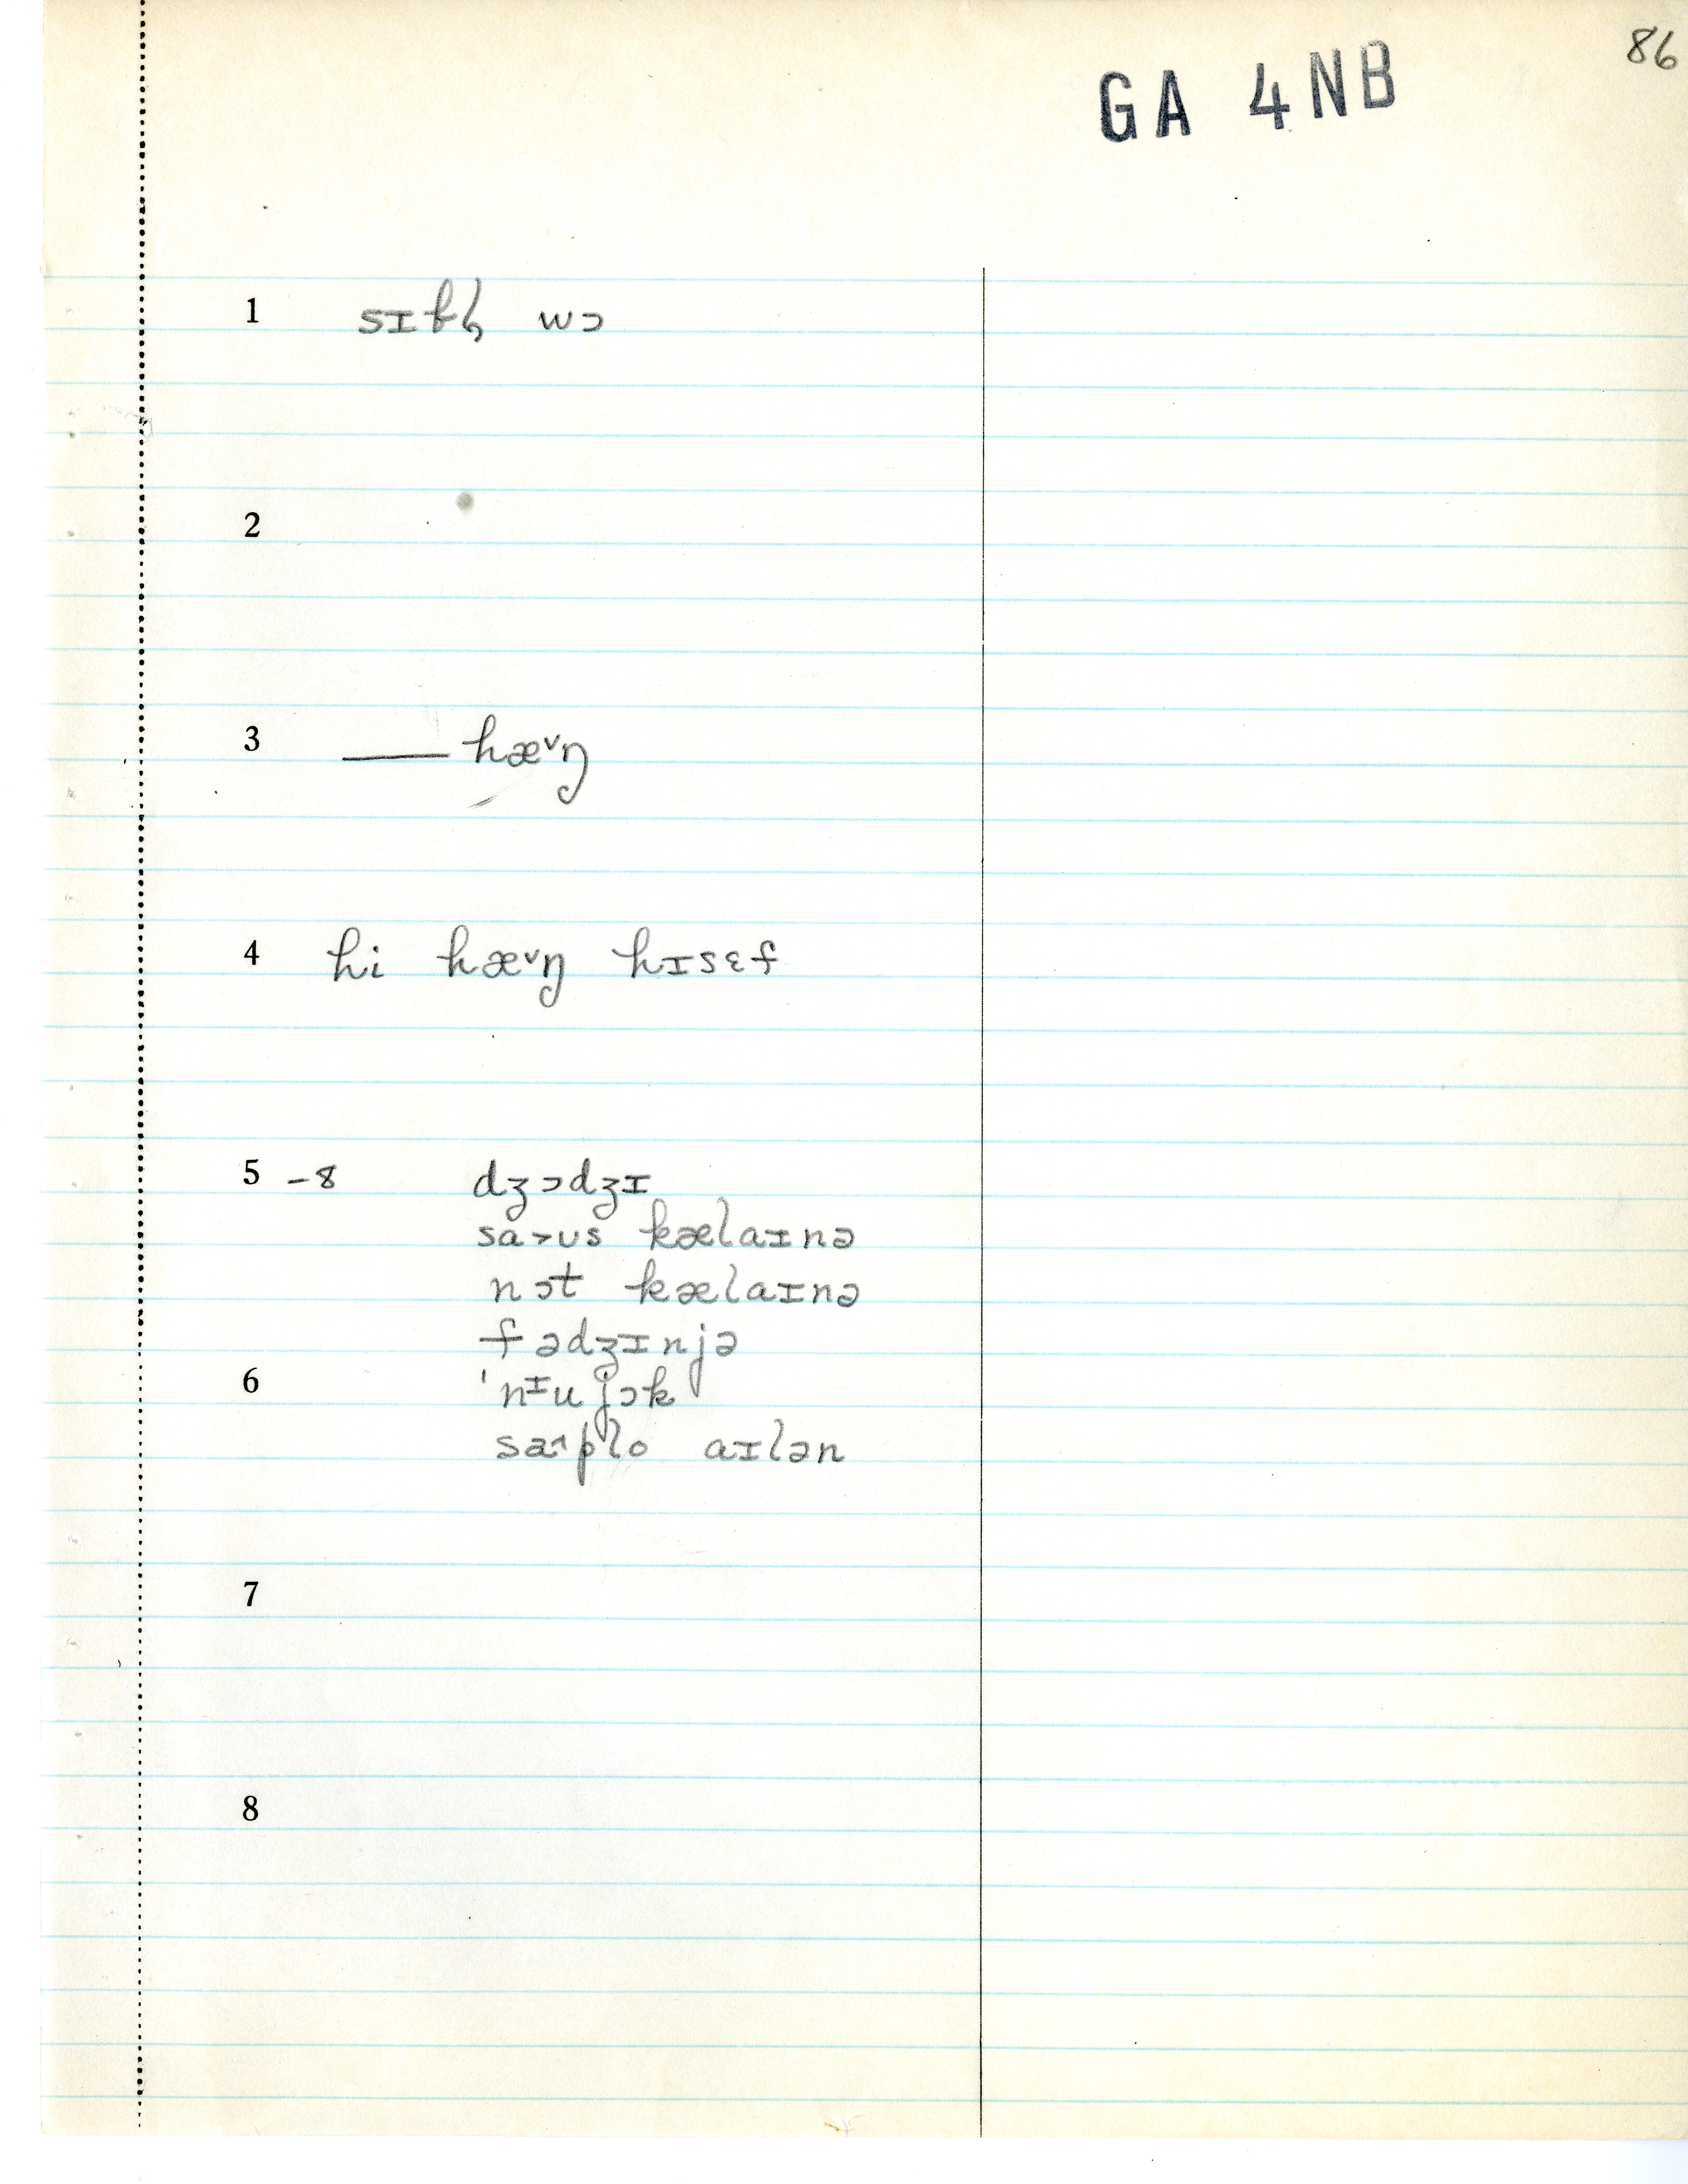 86
GA 4NB
1 sɪƀl̩ wɔ
2
3 —— hæ˅ŋ
4 hi hæ˅ŋ hɪsɛf
5 -8 dʒɔdʒɪ
sa˃ʊs kælaɪnə
nɔt kælaɪnə
fədʒɪnjə
6 'nᶦu jɔk
sa˄plo aɪlən
7
8